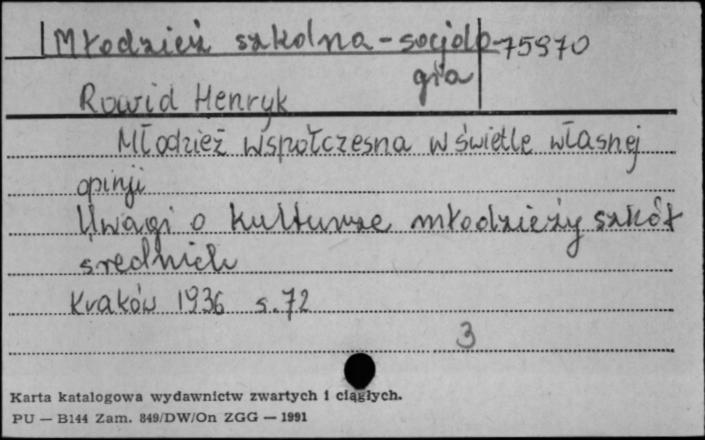 Młodzież szkolna - socjolo- 75970
gia
Rowid Henryk
Młodzież współczesna w świetle własnej
opinji
Uwagi o kulturze młodzieży szkół
średnich
Kraków 1936 s. 72
3
Karta katalogowa wydawnictw zwartych i ciągłych.
PU — B144 Zam. 849/DW/On ZGG — 1991